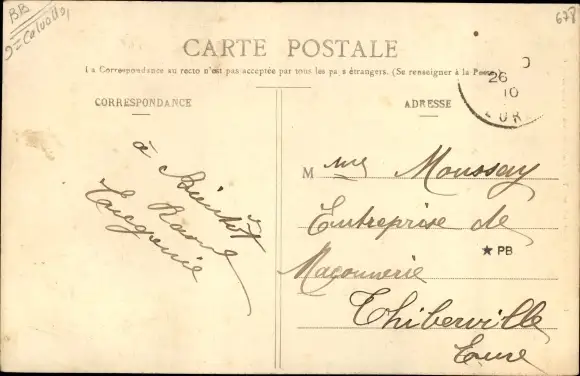 BB
678
CARTE POSTALE
La Correspondance au recto n'est pas acceptée par tous les pays étrangers. (Se renseigner à la Poste)
CORRESPONDANCE
ADRESSE
26
10
EURE
à Bientôt
M me Moussay
Entreprise de
Maçonnerie
★ PB
Thiberville
Eure